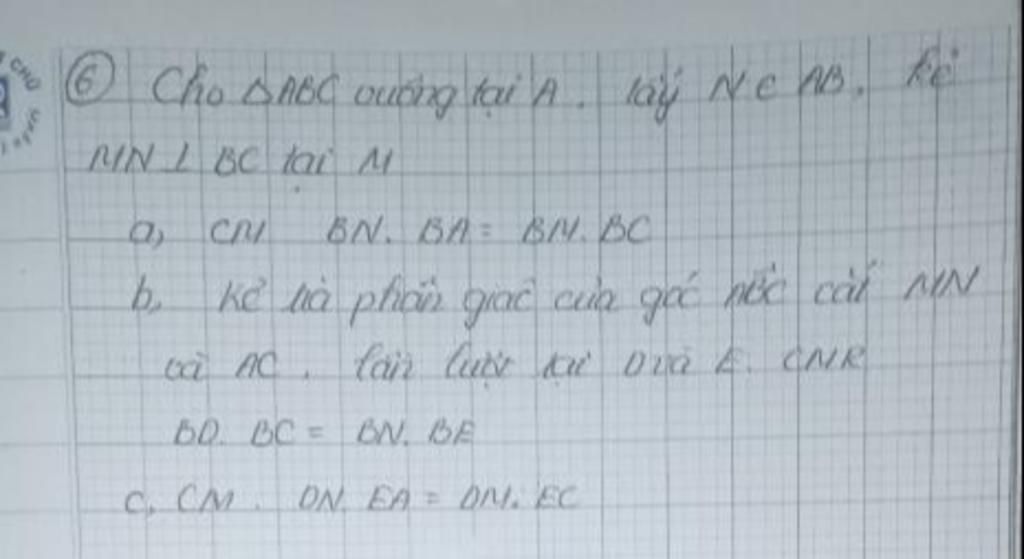 ⑥ Cho ΔABC vuông tại A. lấy N ∈ AB. Kẻ
MN ⊥ BC tại M
a, CM BN. BA = BM. BC
b, Kẻ tia phân giác của góc cắt MN
và AC. lần lượt tại D và E. CMR
BD. BC = BN. BE
c, CM. DN. EA = DM. EC